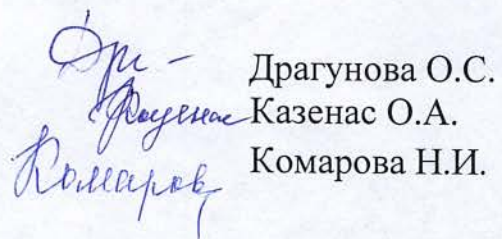 Драгунова О.С.
Казенас О.А.
Комаров Комарова Н.И.